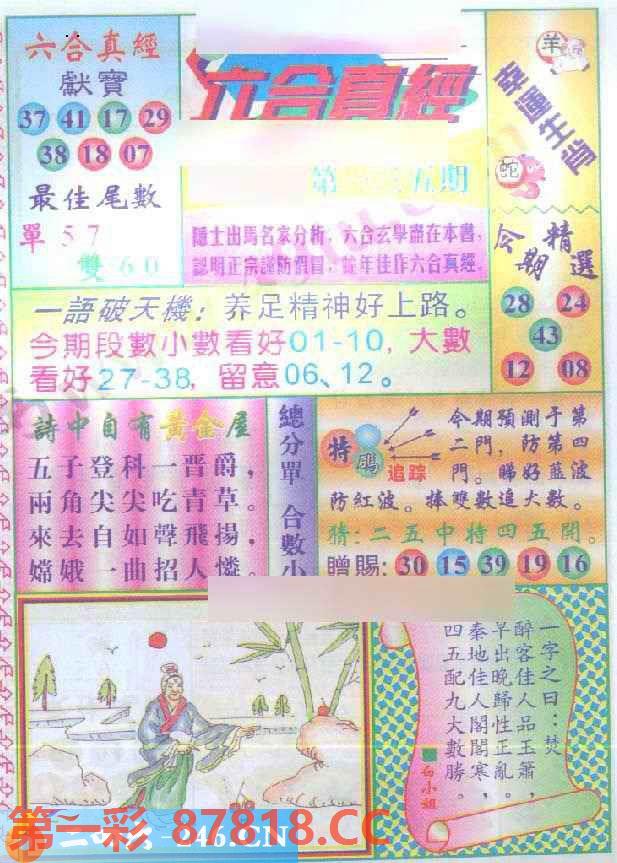 六合真經
獻寶
37 41 17 29
38 18 07
最佳尾數
單57
雙60
六合真經
五期
隱士出馬名家分析，六合玄學盡在本書，
認明正宗謹防假冒，蛇年佳作六合真經。
羊
幸運生肖
蛇
今期精選
28 24
43
12 08
一語破天機：养足精神好上路。
今期段數小數看好01-10，大數
看好27-38，留意06、12。
詩中自有黃金屋
五子登科一晋爵，
兩角尖尖吃青草。
來去自如聲飛揚，
嫦娥一曲招人憐。
總分單 合數小
特碼
追踪
今期預測于第
二門，防第四
門。睇好藍波
防紅波。捧雙數追大數。
猜：二五中特四五開。
贈賜：30 15 39 19 16
一字之曰：焚
醉客佳人品玉簫，
早出晚歸性正亂。
秦地佳人閣閣寒，
四五配九大數勝。
白小姐
第一彩 87818.CC
246.CN